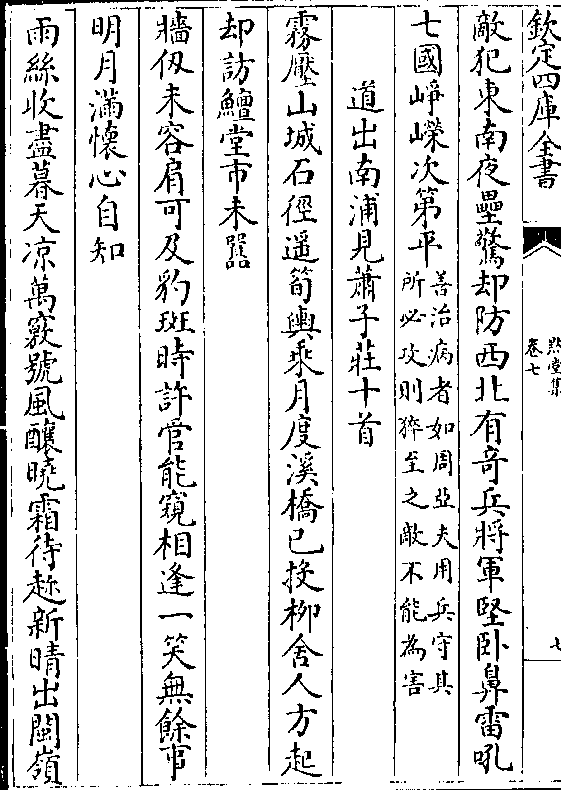 欽定四庫全書
點堂集
卷七
七
敵犯東南夜壘驚却防西北有竒兵將軍堅卧鼻雷吼
七國崢嶸次第平
善治病者如周亞夫用兵守其
所必攻則猝至之敵不能為害
道出南浦見蕭子莊十首
霧壓山城石徑遥筍輿乘月度溪橋已挨柳舍人方起
却訪鱣堂市未嚣
牆仭未容肩可及豹斑時許管能窺相逢一笑無餘事
明月滿懷心自知
雨絲收盡暮天凉萬竅號風釀曉霜待趂新晴出閩嶺